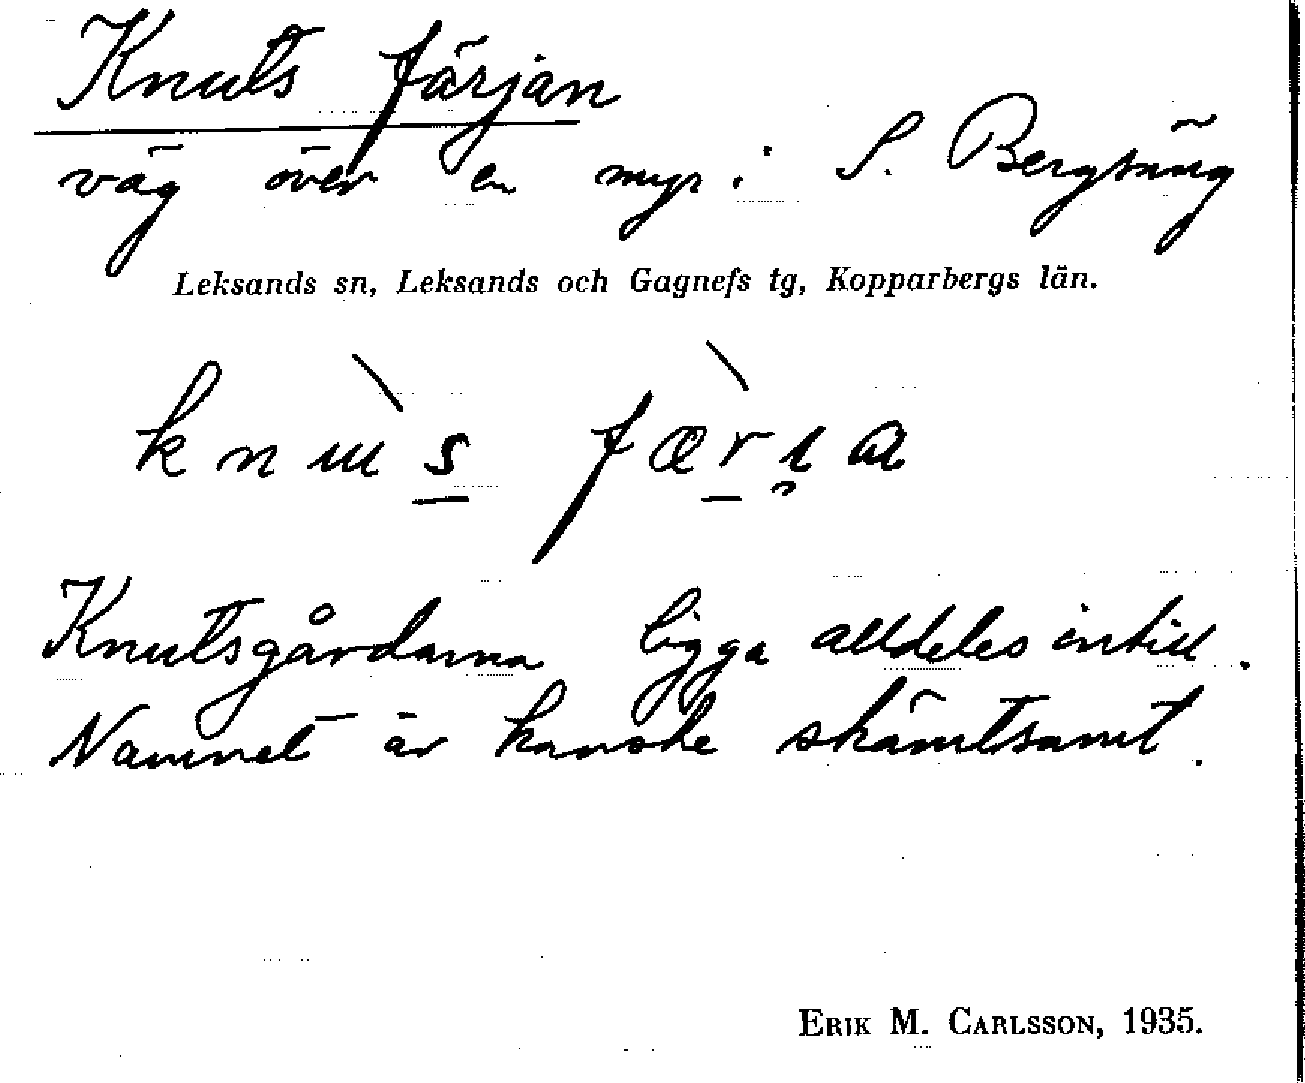 Knuts färjan
väg över en myr i S. Bergsäng
Leksands sn, Leksands och Gagnefs tg, Kopparbergs län.
Knutsgårdarna ligga alldeles intill.
Namnet är kanske skämtsamt.
ERIK M. CARLSSON, 1935.